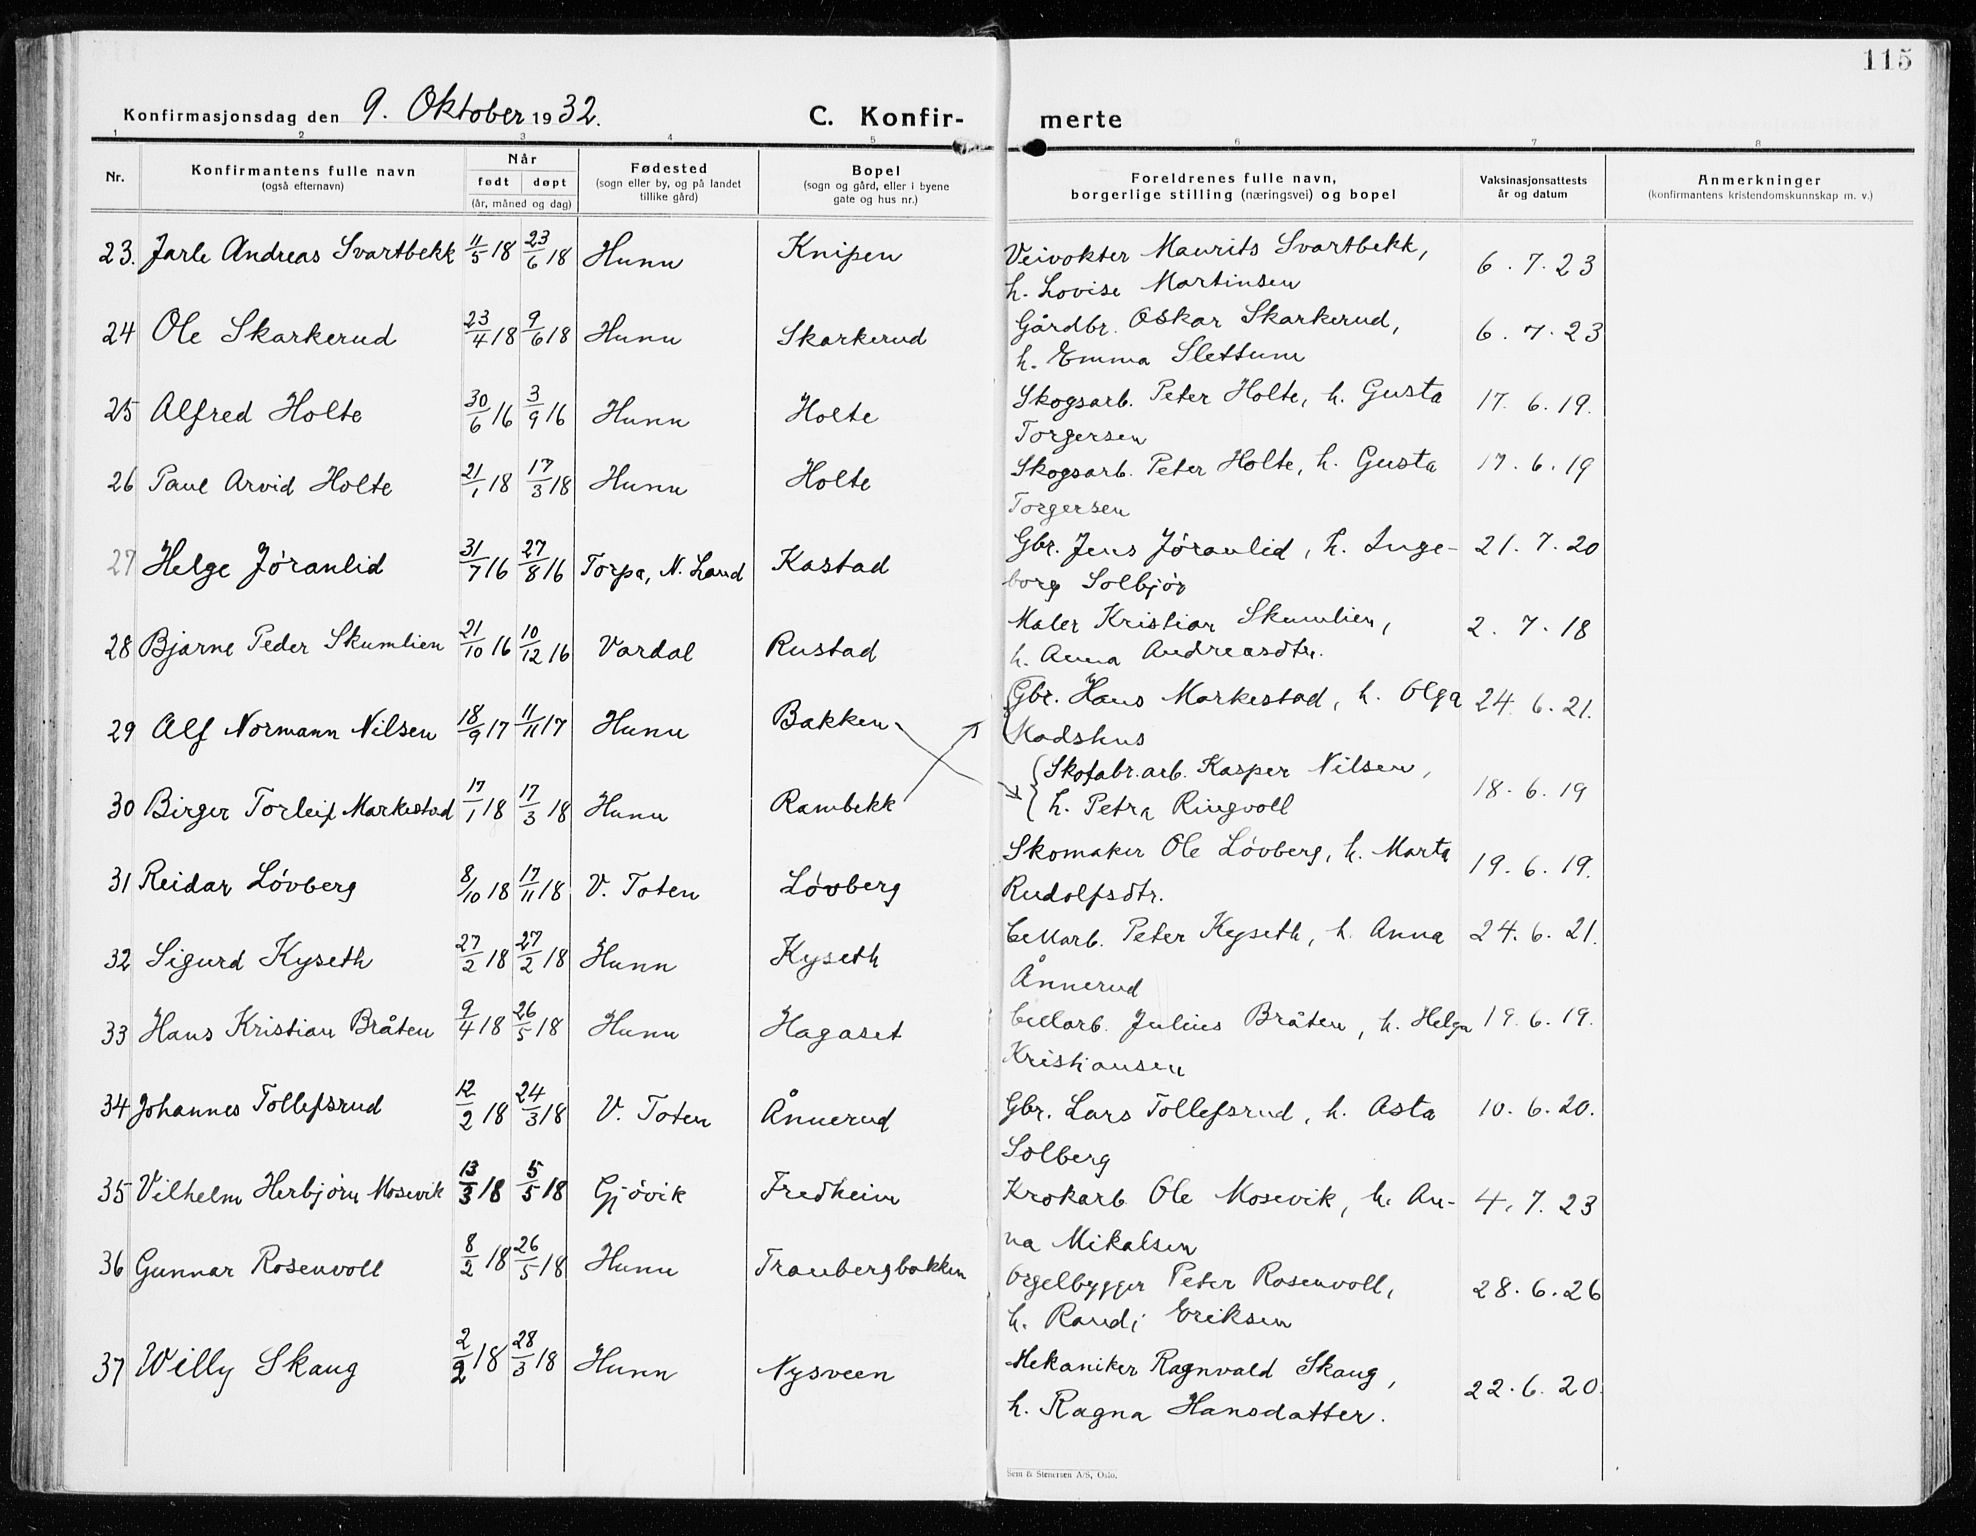 115
Konfirmasjonsdag den 9. Oktober 1932. C. Konfir- merte
1 2 3 4 5 6 7 8
Nr. Konfirmantens fulle navn (også efternavn) Når født døpt (år, måned og dag) Fødested (sogn eller by, og på landet tillike gård) Bopel (sogn og gård, eller i byene gate og hus nr.) Foreldrenes fulle navn, borgerlige stilling (næringsvei) og bopel Vaksinasjonsattests år og datum Anmerkninger (konfirmantens kristendomskunnskap m. v.)
23. Jarle Andreas Svartbekk 11/5 18 23/6 18 Hunn Knipen Veivokter Maurits Svartbekk, 6. 7. 23
h. Lovise Martinsen
24 Ole Skarkerud 23/4 18 9/6 18 Hunn Skarkerud Gårdbr. Oskar Skarkerud, 6. 7. 23
h. Emma Slettum
25 Alfred Holte 30/6 16 3/9 16 Hunn Holte Skogsarb. Peter Holte, h. Gusta 17. 6. 19.
Torgersen
26 Paul Arvid Holte 21/1 18 17/3 18 Hunn Holte Skogsarb. Peter Holte, h. Gusta 17. 6. 19
Torgersen
27 Helge Jøranlid 31/7 16 27/8 16 Torpa, N. Land Kastad Gbr. Jens Jøranlid, h. Inge- 21. 7. 20
borg Solbjør
28 Bjarne Peder Skumlien 21/10 16 10/12 16 Vardal Rustad Maler Kristian Skumlien, 2. 7. 18
h. Anna Andreasdtr.
29 Alf Normann Nilsen 18/9 17 11/11 17 Hunn Bakken Gbr. Hans Markestad, h. Olga 24. 6. 21.
Madshus
30 Birger Torleif Markestad 17/1 18 17/3 18 Hunn Rambekk Skofabr.arb. Kasper Nilsen, 18. 6. 19
h. Petra Ringvoll
31 Reidar Lövberg 8/10 18 17/11 18 V. Toten Lövberg Skomaker Ole Lövberg, h. Marta 19. 6. 19.
Rudolfsdtr.
32 Sigurd Kyseth 27/2 18 27/2 18 Hunn Kyseth Cellarb. Peter Kyseth, h. Anna 24. 6. 21.
Ånnerud
33 Hans Kristian Bråten 9/4 18 26/5 18 Hunn Hagaset Cellarb. Julius Bråten, h. Helga 19. 6. 19.
Kristiansen
34 Johannes Tollefsrud 12/2 18 24/3 18 V. Toten Ånnerud Gbr. Lars Tollefsrud, h. Asta 10. 6. 20.
Solberg
35 Vilhelm Herbjörn Mosevik 13/3 18 5/5 18 Gjövik Fredheim Krokarb Ole Mosevik, h. An- 4. 7. 23
na Mikalsen
36 Gunnar Rosenvoll 8/2 18 26/5 18 Hunn Tranbergbakken Orgelbygger Peter Rosenvoll, 28. 6. 26
h. Randi Eriksen
37 Willy Skaug 2/2 18 28/3 18 Hunn Nysveen Mekaniker Ragnvald Skaug, 22. 6. 20.
h. Ragna Hansdatter.
Sem & Stenersen A/S, Oslo.